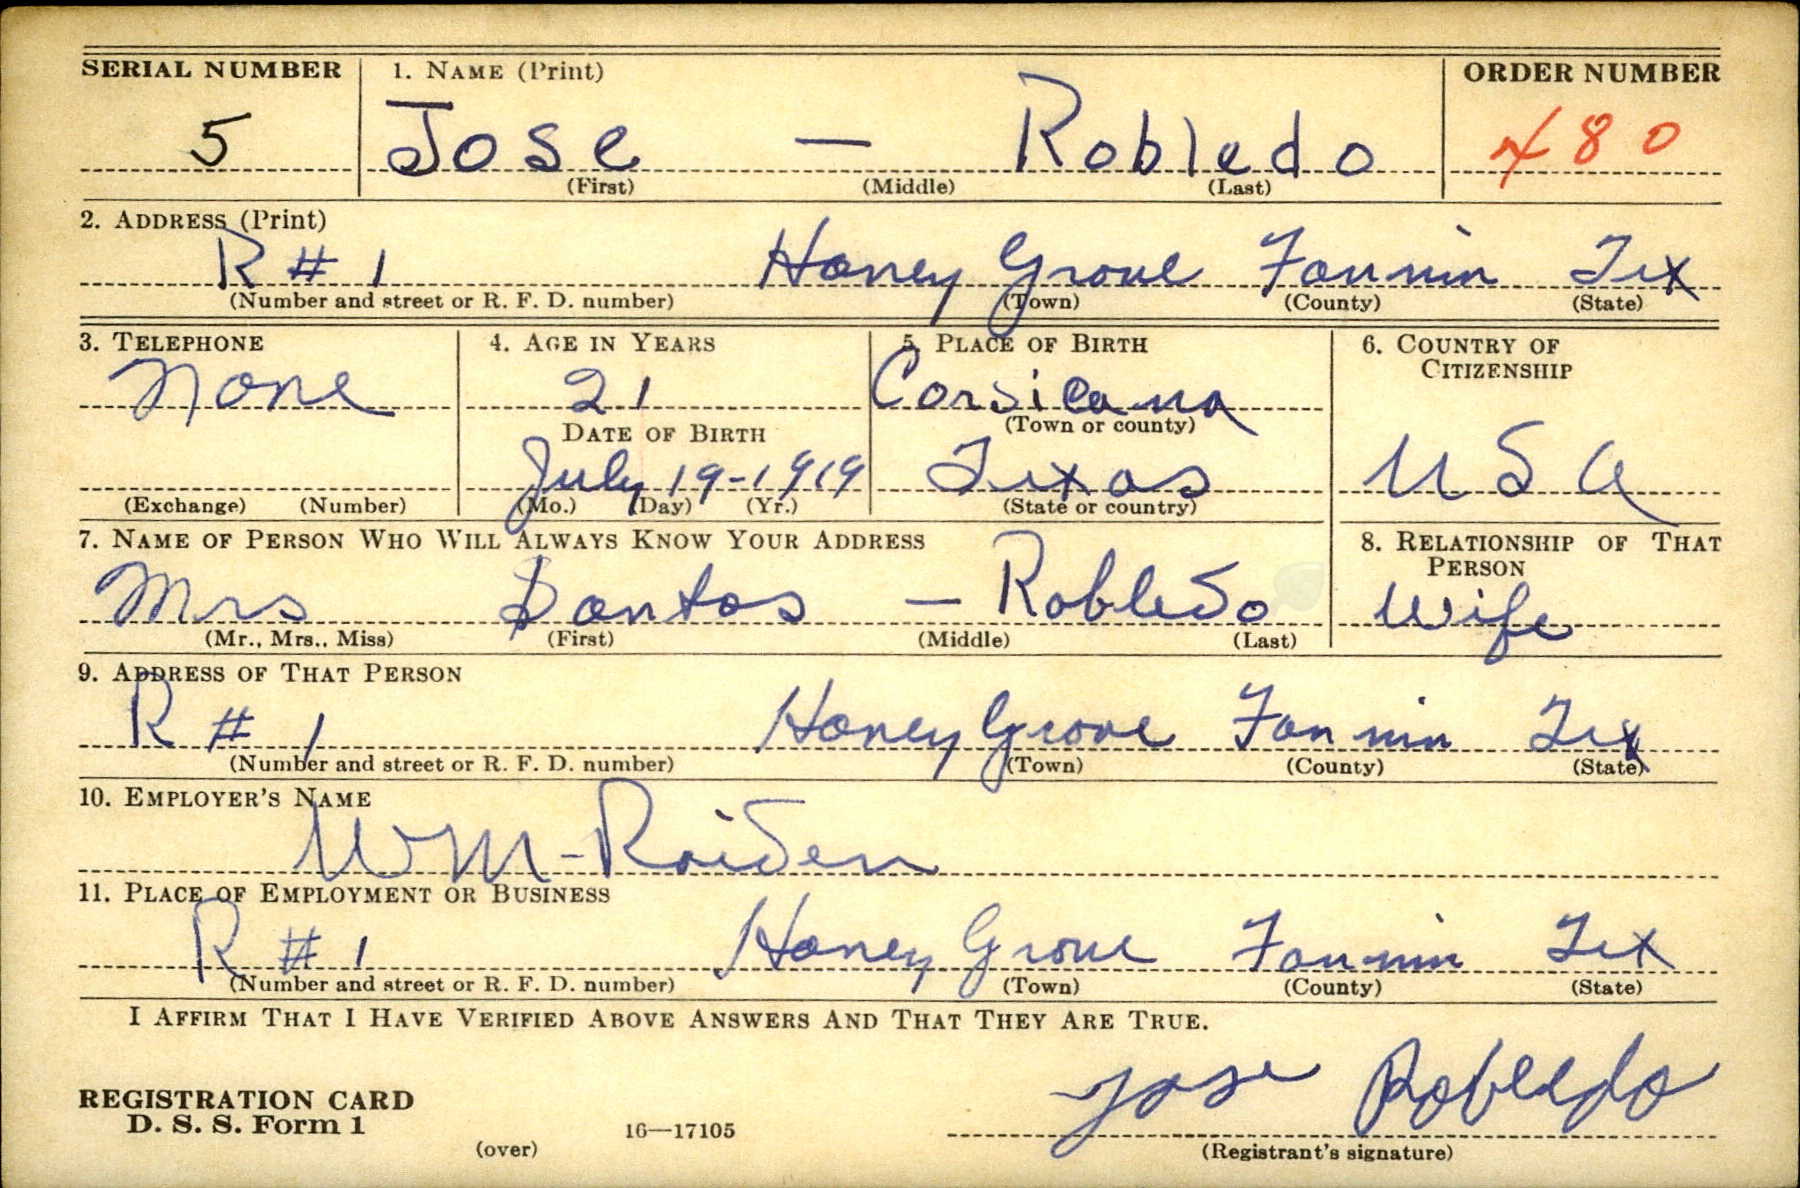 SERIAL NUMBER 1. NAME (Print) ORDER NUMBER
5 Jose — Robledo 480
(First) (Middle) (Last)
2. ADDRESS (Print)
R # 1 Honey Grove Fannin Tex
(Number and street or R. F. D. number) (Town) (County) (State)
3. TELEPHONE 4. AGE IN YEARS 5. PLACE OF BIRTH 6. COUNTRY OF CITIZENSHIP
None 21 Corsicana
DATE OF BIRTH (Town or county)
July 19-1919 Texas U S A
(Exchange) (Number) (Mo.) (Day) (Yr.) (State or country)
7. NAME OF PERSON WHO WILL ALWAYS KNOW YOUR ADDRESS 8. RELATIONSHIP OF THAT PERSON
Mrs Santos — Robledo Wife
(Mr., Mrs., Miss) (First) (Middle) (Last)
9. ADDRESS OF THAT PERSON
R # 1 Honey Grove Fannin Tex
(Number and street or R. F. D. number) (Town) (County) (State)
10. EMPLOYER'S NAME
WM - Raiden
11. PLACE OF EMPLOYMENT OR BUSINESS
R # 1 Honey Grove Fannin Tex
(Number and street or R. F. D. number) (Town) (County) (State)
I AFFIRM THAT I HAVE VERIFIED ABOVE ANSWERS AND THAT THEY ARE TRUE.
Jose Robledo
REGISTRATION CARD
D. S. S. Form 1
(over) 16—17105 (Registrant's signature)